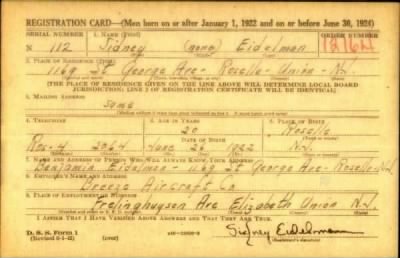 REGISTRATION CARD—(Men born on or after January 1, 1922 and on or before June 30, 1924)
SERIAL NUMBER 1. NAME (Print) ORDER NUMBER
N 112 Sidney (none) Eidelman 12162
2. PLACE OF RESIDENCE (Print)
1169 St George Ave - Roselle - Union - N.J.
[THE PLACE OF RESIDENCE GIVEN ON THE LINE ABOVE WILL DETERMINE LOCAL BOARD
JURISDICTION; LINE 2 OF REGISTRATION CERTIFICATE WILL BE IDENTICAL]
3. MAILING ADDRESS
same
4. TELEPHONE 5. AGE IN YEARS 6. PLACE OF BIRTH
20 Roselle
Ros-4 2064 June 26 1922 N.J.
7. NAME AND ADDRESS OF PERSON WHO WILL ALWAYS KNOW YOUR ADDRESS
Benjamin Eidelman - 1169 St George Ave - Roselle - N.J.
8. EMPLOYER'S NAME AND ADDRESS
Breeze Aircraft Co
9. PLACE OF EMPLOYMENT OR BUSINESS
Frelinghuysen Ave Elizabeth Union N.J.
I AFFIRM THAT I HAVE VERIFIED ABOVE ANSWERS AND THAT THEY ARE TRUE.
D. S. S. Form 1
Sidney Eidelman